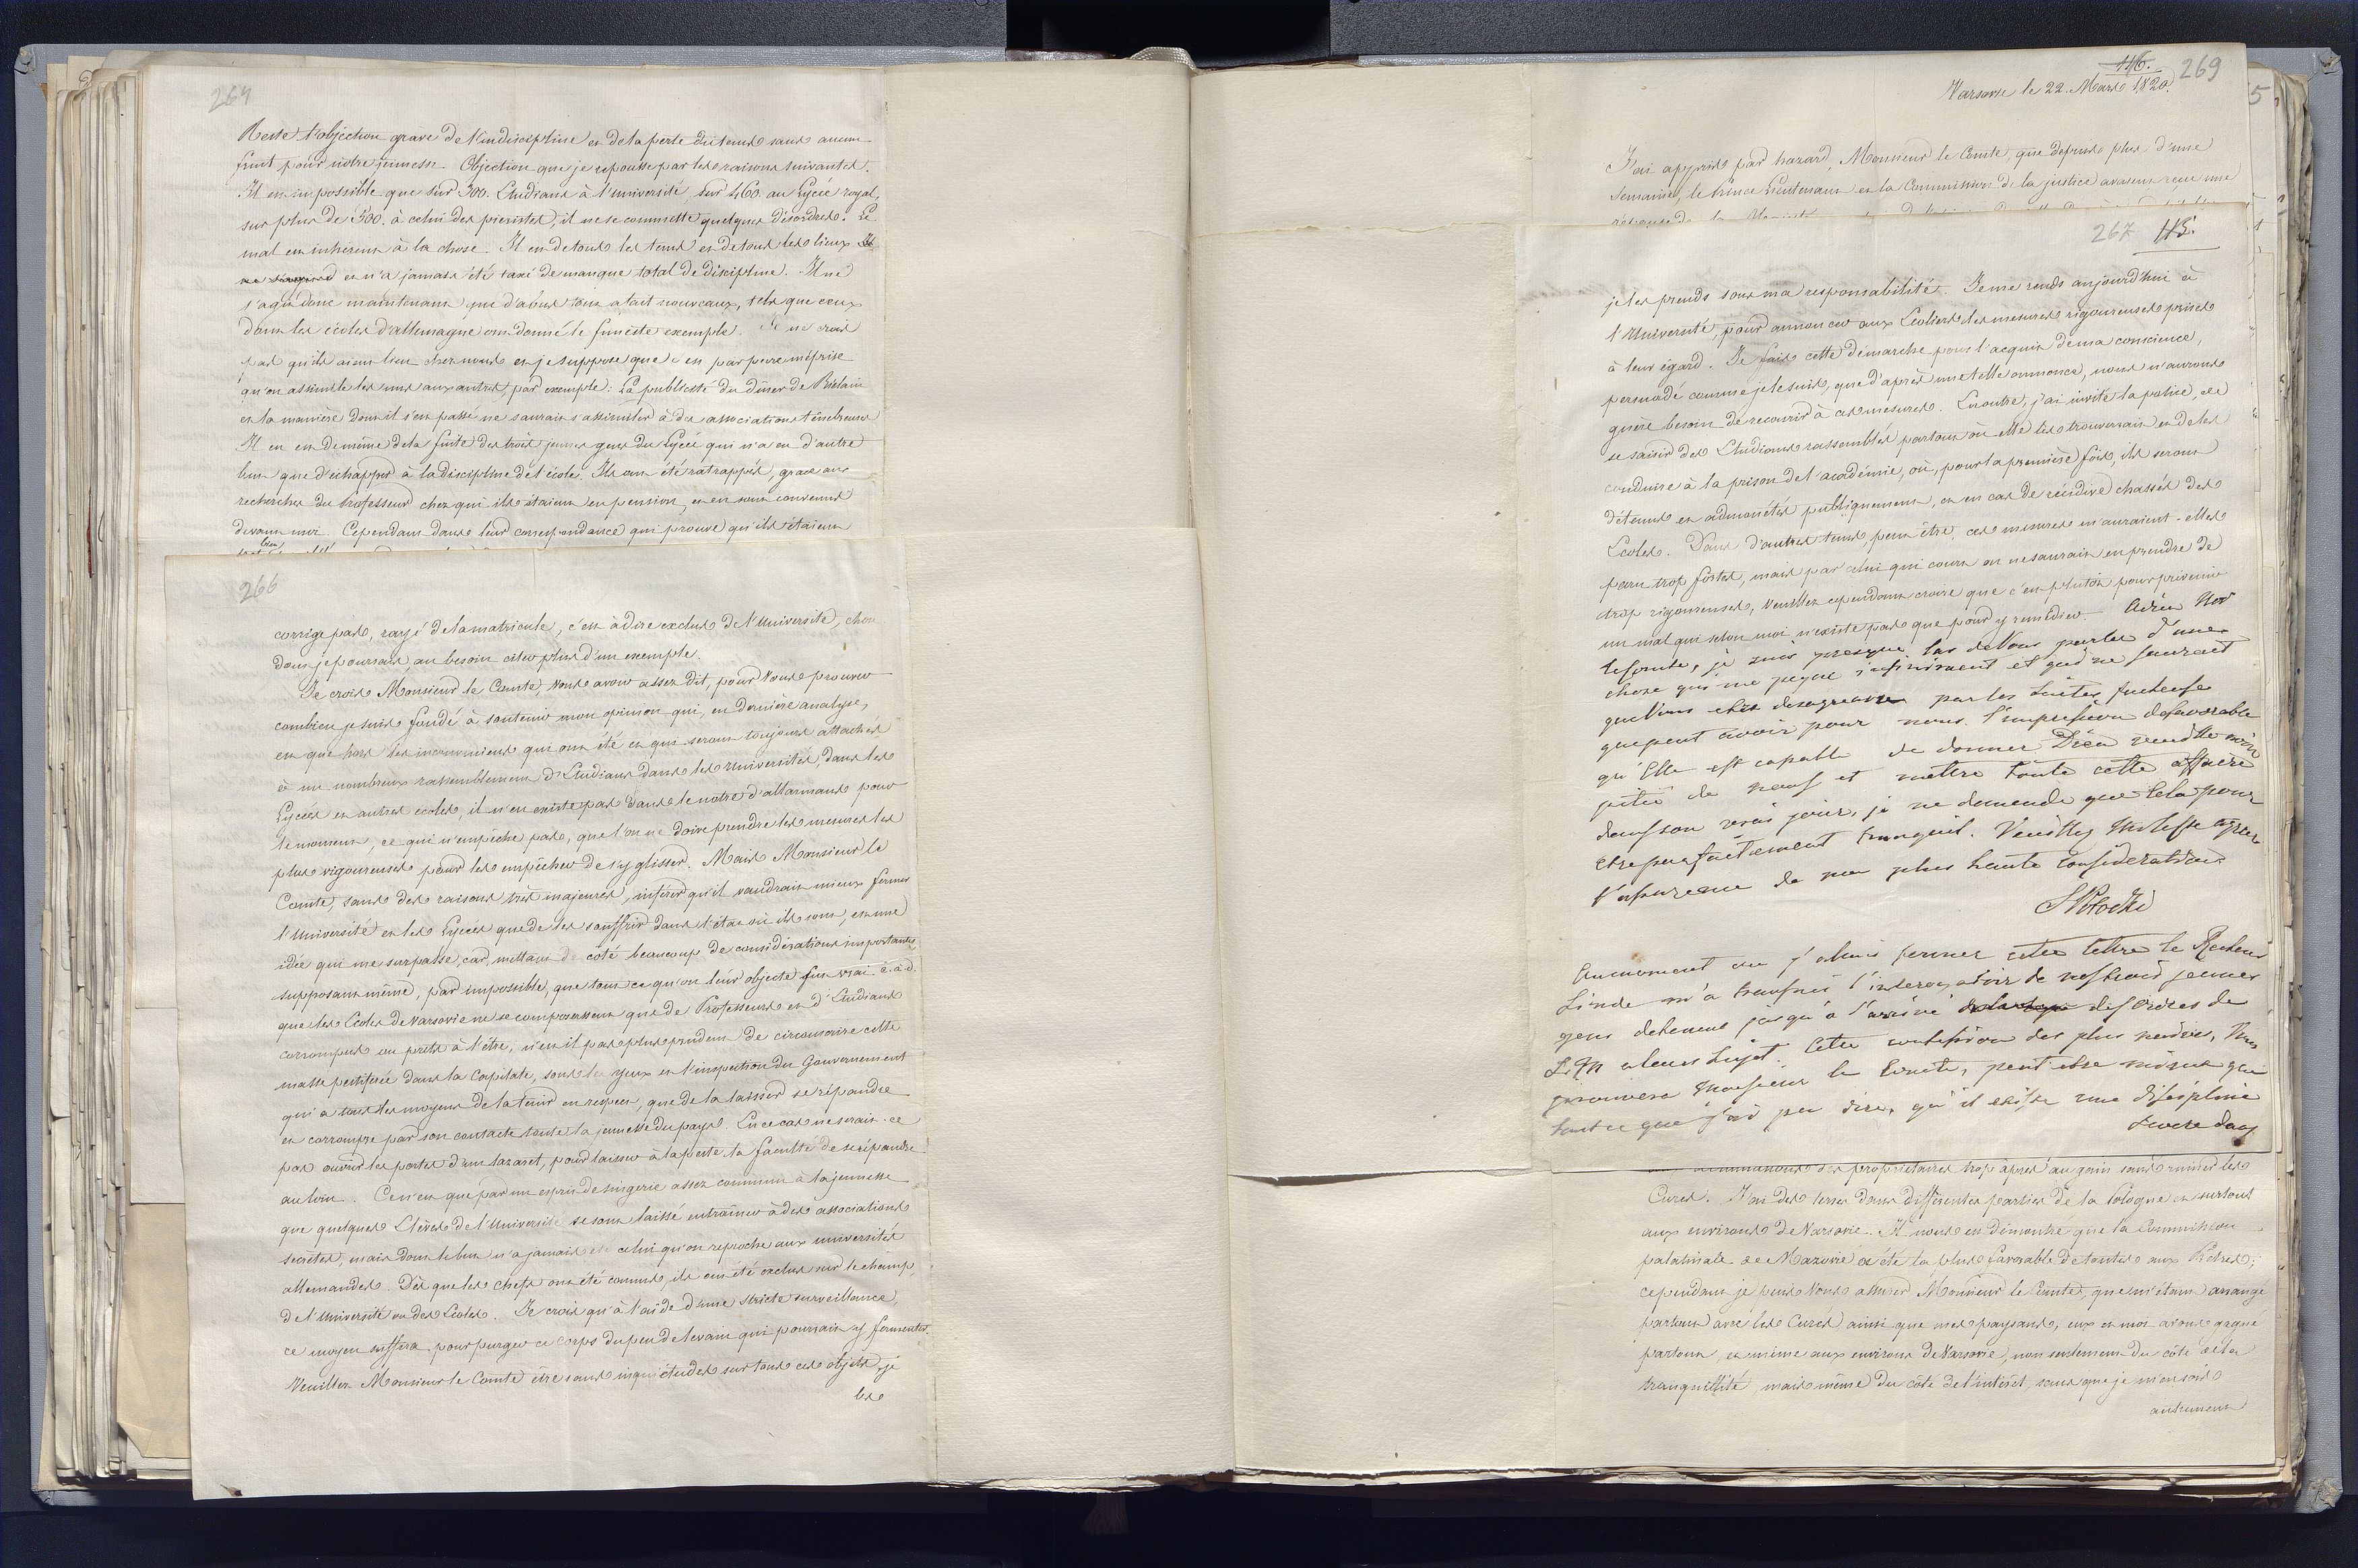 264
Reste l'objection grave de l'indiscipline et de la perte du tems sans aucun
fruit pour notre jeunesse. Objection que je repousse par les raisons suivantes.
Il est impossible que sur 500. Etudians à l'université, sur 460. au Lycée royal,
sur plus de 500. à celui des piaristes, il ne se commette quelques désordres. Le
mal est inhérent à la chose. Il est de tous les tems et de tous les lieux
et n'a jamais été taxé de manque total de discipline. Il ne
s'agit donc maintenant que d'abus tout a fait nouveaux, tels que ceux
dont les écoles d'allemagne ont donné le funeste exemple. Je ne crois
pas qu'ils aient lieu chez nous et je suppose que c'est par pure méprise
qu'on assimile les uns aux autres, par exemple: La publicité du diner de Bielain
et la manière dont il s'est passé ne saurait s'assimiler à des associations ténébreuses
Il en est de même de la fuite des trois jeunes gens du Lycée qui n'a eu d'autre
but que d'échapper à la discipline de l'école. Ils ont été ratrappés, grace aux
recherches du Professeur chez qui ils étaient en pension, et en sont convenus
devant moi. Cependant dans leur correspondance qui prouve qu'ils étaient
266
corrige pas, rayé de la matricule, c'est à dire exclus de l'Université, chose
dont je pourrais, au besoin citer plus d'un exemple.
Je crois Monsieur le Comte, Vous avoir assez dit, pour Vous prouver
combien je suis fondé à soutenir mon opinion qui, en dernière analyse,
est que hors les inconvéniens qui ont été et qui seront toujours attachés
à un nombreux rassemblement d'Etudians dans les Universités, dans les
Lycées et autres écoles, il n'en existe pas dans le notre d'allarmans pour
le moment, ce qui n'empêche pas, que l'on ne doive prendre les mesures les
plus rigoureuses pour les empêcher de s'y glisser. Mais Monsieur le
Comte, sans des raisons très majeures, inférer qu'il vaudrait mieux fermer
l'Université et les Lycées que de les souffrir dans l'état où ils sont, est une
idée qui me surpasse, car, mettant de coté beaucoup de considérations importantes,
supposant même, par impossible, que tout ce qu'on leur objecte fut vrai. c. à d.
que les Ecoles de Varsovie ne se composassent que de Professeurs et d'Etudians
corrompus ou prêts à l'être, n'est il pas plus prudent de circonscrire cette
masse pestiférée dans la Capitale, sous les yeux et l'inspection du Gouvernement
qui a tous les moyens de la tenir en respect, que de la laisser se répandre
et corrompre par son contacte toute la jeunesse du pays. En ce cas ne serait-ce
pas ouvrir les portes d'un lazaret, pour laisser à la peste la faculté de se répandre
au loin. Ce n'est que par un esprit de singerie assez commun à la jeunesse
que quelques Elèves de l'Université se sont laissé entraîner à des associations
secretes, mais dont le but n'a jamais été celui qu'on reproche aux universités
allemandes. Dès que les chefs ont été connus, ils ont été exclus sur le champ,
de l'Université ou des Ecoles. Je crois qu'à l'aide d'une stricte surveillance,
ce moyen suffira pour purger ce corps du peu de levain qui pourrait y fermenter.
Veuillez Monsieur le Comte être sans inquiétudes sur tous ces objets, je
les
116. 269
Varsovie le 22. Mars 1820.
J'ai appris par hazard, Monsieur le Comte, que depuis plus d'une
semaine, le Prince Lieutenant et la Commission de la justice avaient reçu une
267 115.
je les prends sous ma responsabilité. Je me rends aujourd'hui à
l'Université, pour annoncer aux Ecoliers les mesures rigoureuses prises
à leur égard. Je fais cette démarche pour l'acquit de ma conscience,
persuadé comme je le suis, que d'après une telle annonce, nous n'aurons
guère besoin de recourir à ces mesures. En outre, j'ai invité la police, de
se saisir des Etudians rassemblés partout où elle les trouverait et de les
conduire à la prison de l'académie, où, pour la première fois, ils seront
détenus et admonétés publiquement, et en cas de récidive chassés des
Ecoles. Dans d'autres tems, peut être, ces mesures m'auraient-elles
paru trop fortes, mais par celui qui court on ne saurait en prendre de
trop rigoureuses, Veuillez cependant croire que c'est plutôt pour prévenir
un mal qui selon moi n'existe pas que pour y remédier. Adieu Mor
le Comte, je suis presque las de Vous parler d'une
chose qui me peyne infiniment et qui ne saurait
que Vous etre desagreable par les suites facheuse
que peut avoir pour nous l'impression defavorable
qu'Elle est capable de donner Dieu veuille avoir
pitié de nous et mettre toute cette affaire
dans son vrai jour, je ne demande que cela pour
etre parfaitement tranquil. Veuillez Mr le Cte agréer
l'assurance de ma plus haute consideration.
SPotocki
Au moment ou j'alais fermer cette lettre le Recteur
Linde m'a transmis l'interogatoir de nos trois jeunes
gens detenus jusqu'à l'arivé des ordres de
S. M a leur sujet. Cette confession des plus naives, Vous
prouvera Monsieur le Comte, peut etre mieux que
tout ce que j'ai pu dire, qu'il existe une discipline
severe dans
des propriétaires trop âpres au gain sans ruiner les
Curés. J'ai des terres dans différentes parties de la Pologne et surtout
aux environs de Varsovie. Il nous est démontré que la Commission
palatinale de Mazovie a été la plus favorable de toutes aux Prêtres;
cependant je puis Vous assurer Monsieur le Comte, que m'étant arrangé
partout avec les Curés ainsi que mes paysans, eux et moi avons gagné
partout, et même aux environs de Varsovie, non seulement du côté de la
tranquillité, mais même du côté de l'intérêt, sans que je m'en sois
autrement